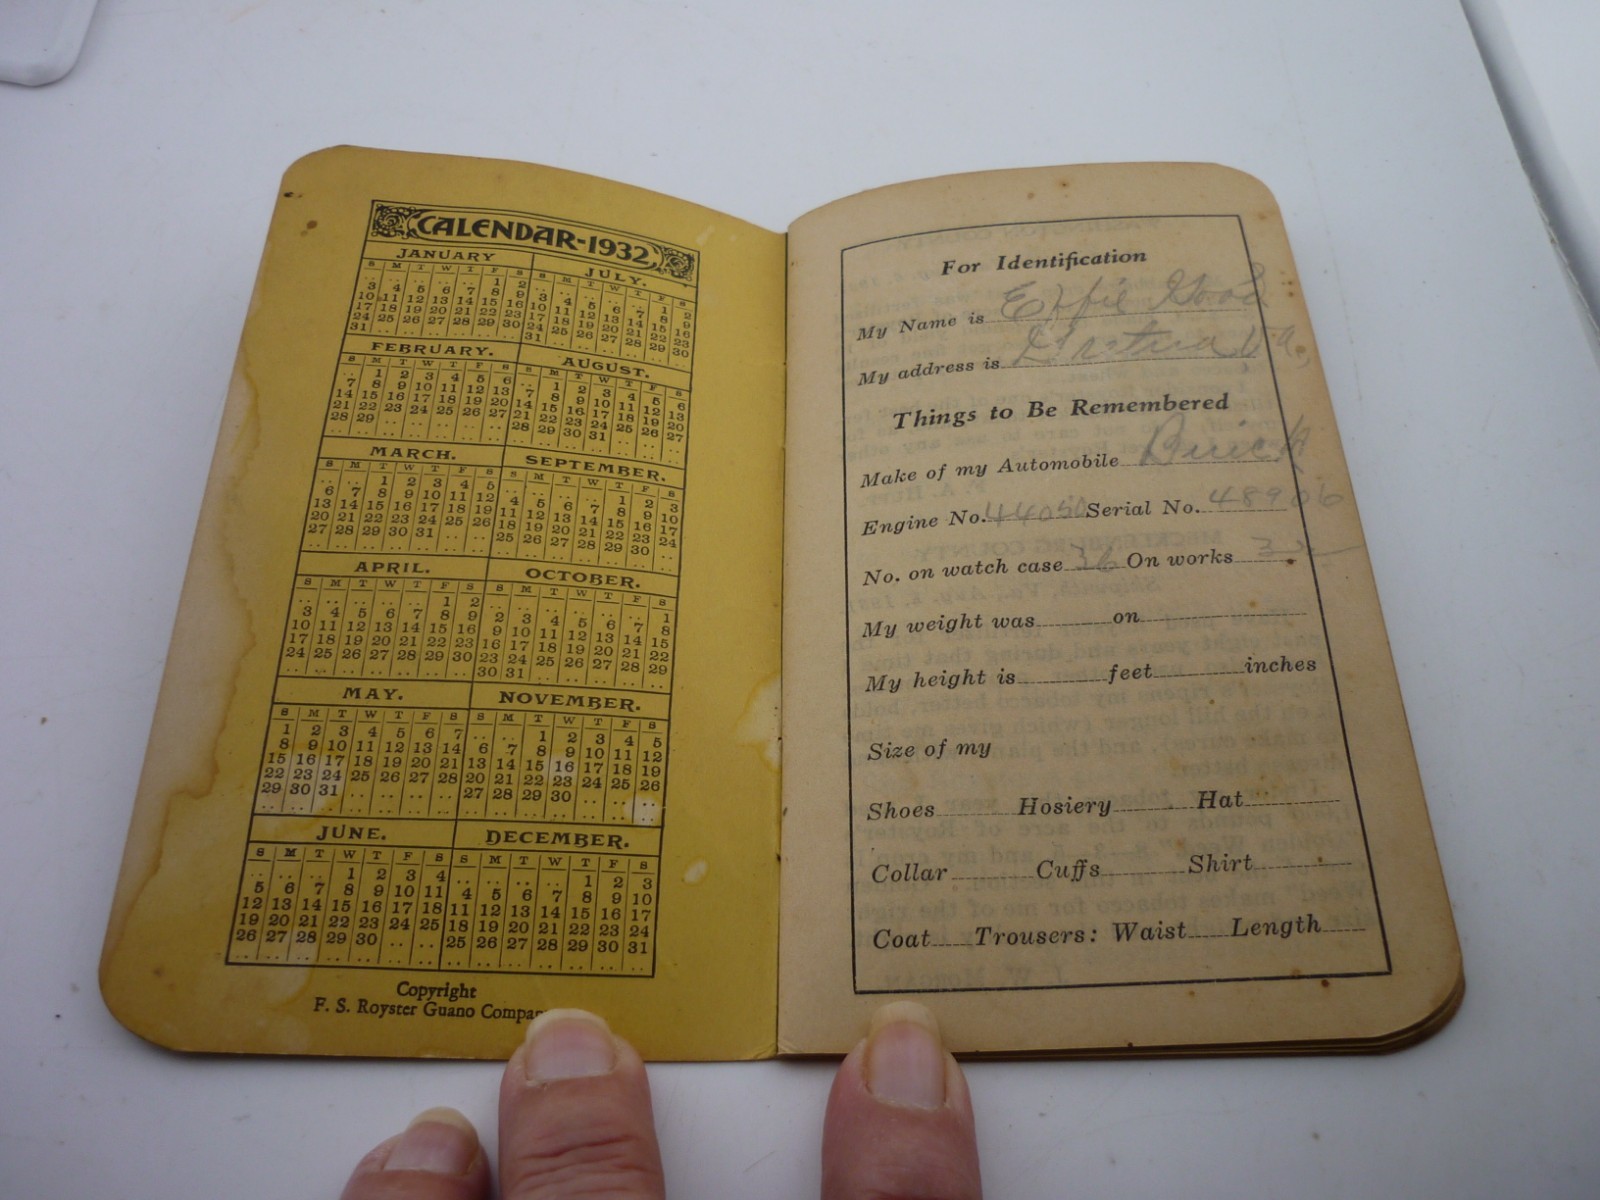 CALENDAR-1932
JANUARY
S M T W T F S
1 2
3 4 5 6 7 8 9
10 11 12 13 14 15 16
17 18 19 20 21 22 23
24 25 26 27 28 29 30
31
JULY.
S M T W T F S
1 2
3 4 5 6 7 8 9
10 11 12 13 14 15 16
17 18 19 20 21 22 23
24 25 26 27 28 29 30
31
FEBRUARY.
S M T W T F S
1 2 3 4 5 6
7 8 9 10 11 12 13
14 15 16 17 18 19 20
21 22 23 24 25 26 27
28 29
AUGUST.
S M T W T F S
1 2 3 4 5 6
7 8 9 10 11 12 13
14 15 16 17 18 19 20
21 22 23 24 25 26 27
28 29 30 31
MARCH.
S M T W T F S
1 2 3 4 5
6 7 8 9 10 11 12
13 14 15 16 17 18 19
20 21 22 23 24 25 26
27 28 29 30 31
SEPTEMBER.
S M T W T F S
1 2 3
4 5 6 7 8 9 10
11 12 13 14 15 16 17
18 19 20 21 22 23 24
25 26 27 28 29 30
APRIL.
S M T W T F S
1 2
3 4 5 6 7 8 9
10 11 12 13 14 15 16
17 18 19 20 21 22 23
24 25 26 27 28 29 30
OCTOBER.
S M T W T F S
1
2 3 4 5 6 7 8
9 10 11 12 13 14 15
16 17 18 19 20 21 22
23 24 25 26 27 28 29
30 31
MAY.
S M T W T F S
1 2 3 4 5 6 7
8 9 10 11 12 13 14
15 16 17 18 19 20 21
22 23 24 25 26 27 28
29 30 31
NOVEMBER.
S M T W T F S
1 2 3 4 5
6 7 8 9 10 11 12
13 14 15 16 17 18 19
20 21 22 23 24 25 26
27 28 29 30
JUNE.
S M T W T F S
1 2 3 4
5 6 7 8 9 10 11
12 13 14 15 16 17 18
19 20 21 22 23 24 25
26 27 28 29 30
DECEMBER.
S M T W T F S
1 2 3
4 5 6 7 8 9 10
11 12 13 14 15 16 17
18 19 20 21 22 23 24
25 26 27 28 29 30 31
Copyright
F. S. Royster Guano Compa
For Identification
My Name is Effie Good
My address is Va.
Things to Be Remembered
Make of my Automobile Buick
Engine No. 44050 Serial No. 48906
No. on watch case 36 On works
My weight was on
My height is feet inches
Size of my
Shoes Hosiery Hat
Collar Cuffs Shirt
Coat Trousers: Waist Length